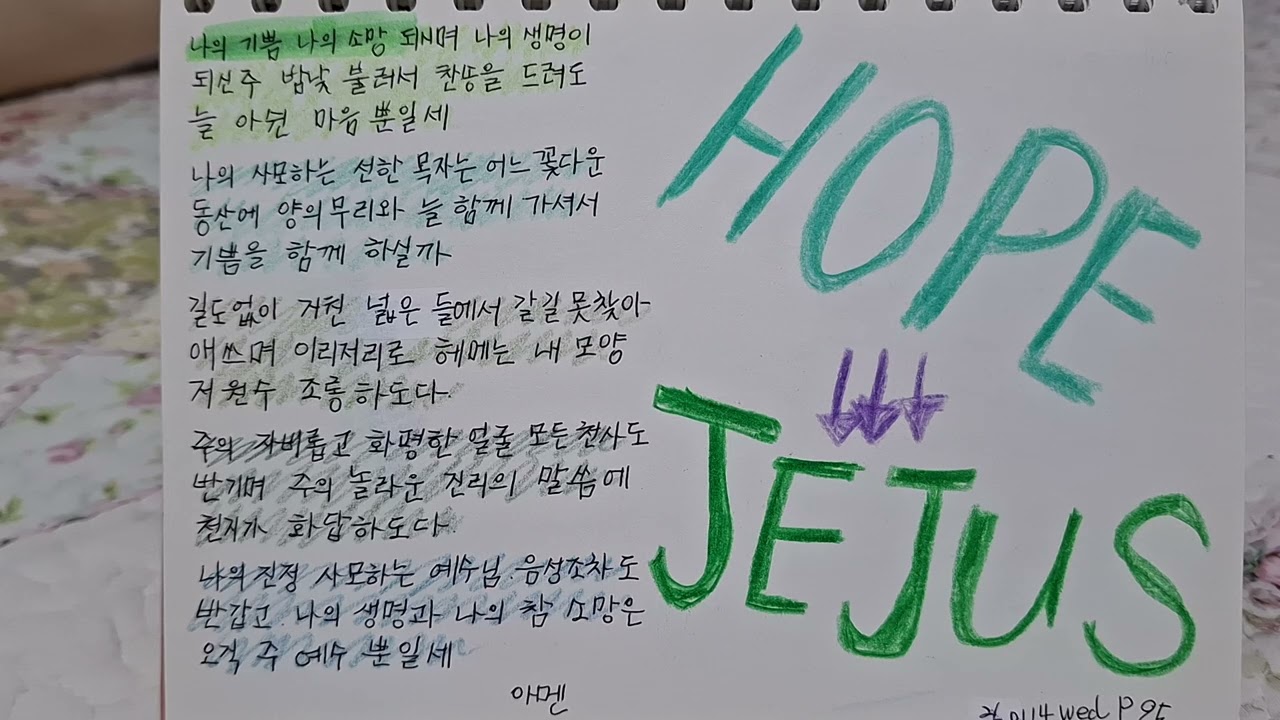 나의 기쁨 나의 소망 되시며 나의 생명이
되신주 밤낮 불러서 찬송을 드려도
늘 아쉰 마음 뿐일세
나의 사모하는 선한 목자는 어느 꽃다운
동산에 양의 무리와 늘 함께 가셔서
기쁨을 함께 하실까
길도 없이 거친 넓은 들에서 갈길 못찾아
애쓰며 이리저리로 헤메는 내 모양
저 원수 조롱하도다.
주의 자비롭고 화평한 얼굴 모든 천사도
반기며 주의 놀라운 진리의 말씀에
천지가 화답하도다.
나의 진정 사모하는 예수님. 음성조차도
반갑고. 나의 생명과 나의 참 소망은
오직 주 예수 뿐일세
아멘
HOPE
JEJUS
wed p 95